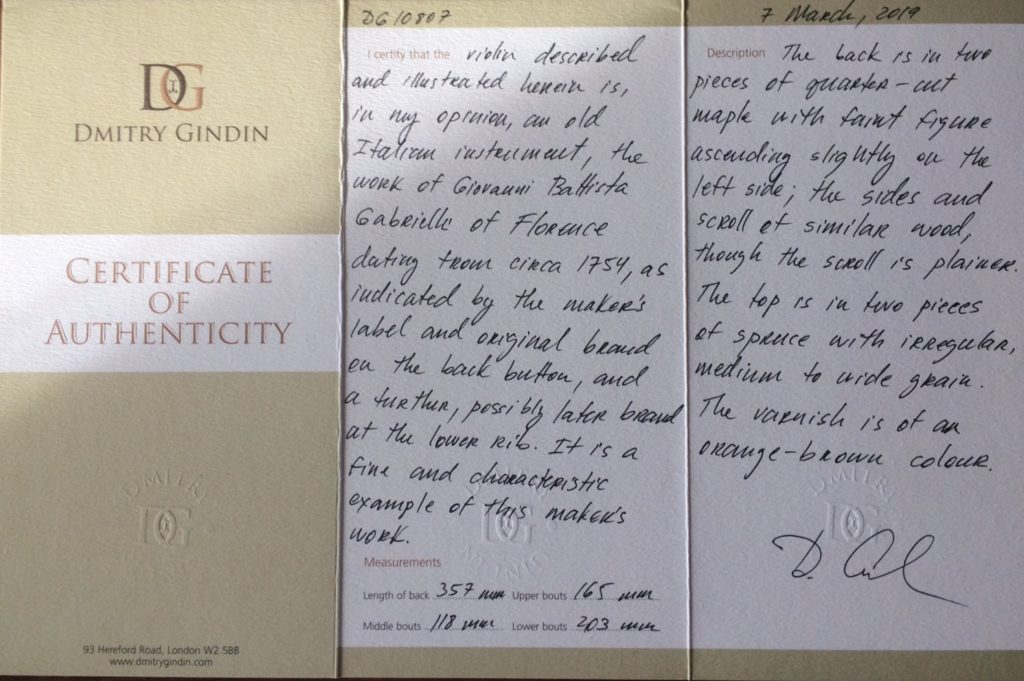 DG
DMITRY GINDIN
CERTIFICATE
OF
AUTHENTICITY
DMITRY
DG
93 Hereford Road, London W2 5BB
www.dmitrygindin.com
DG10807
I certify that the violin described
and illustrated herein is,
in my opinion, an old
Italian instrument, the
work of Giovanni Battista
Gabrielli of Florence
dating from circa 1754, as
indicated by the maker's
label and original brand
on the back button, and
a further, possibly later brand
at the lower rib. It is a
fine and characteristic
example of this maker's
work.
DG
Measurements
Length of back 357 mm Upper bouts 165 mm
Middle bouts 118 mm Lower bouts 203 mm
7 March, 2019
Description The back is in two
pieces of quarter-cut
maple with faint figure
ascending slightly on the
left side; the sides and
scroll of similar wood,
though the scroll is plainer.
The top is in two pieces
of spruce with irregular,
medium to wide grain.
The varnish is of an
orange-brown colour.
DMITRY
DG